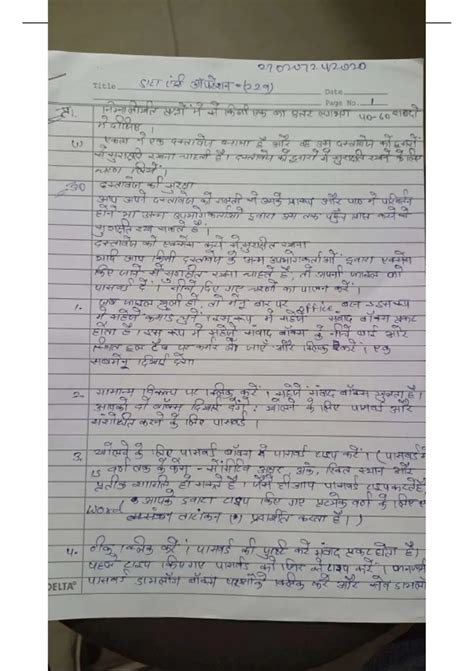 270207242020
Title डाटा एंट्री ऑपरेशन (229) Date
Page No. 1
प्र१. निम्नलिखित प्रश्नों में से किसी एक का उत्तर लगभग 40-60 शब्दों
में दीजिए।
(i) एकता ने एक दस्तावेज बनाया है और वह उस दस्तावेज को दूसरों
से सुरक्षित रखना चाहती है। दस्तावेज को दूसरों से सुरक्षित रखने के लिए
लिखें।
उ० दस्तावेज की सुरक्षा
आप अपने दस्तावेज को गलती से उसके प्रारूप और पाठ में परिवर्तन
होने या अन्य उपयोगकर्ताओं द्वारा उस तक पहुँच प्राप्त करने से
सुरक्षित रख सकते हैं।
दस्तावेज को एक्सेस करने से सुरक्षित रखना
यदि आप किसी दस्तावेज के अन्य उपयोगकर्ताओं द्वारा एक्सेस
किए जाने से सुरक्षित रखना चाहते हैं, तो अपनी फाइल को
पासवर्ड दें। नीचे दिए गए चरणों का पालन करें।
1. जब फाइल खुली हो, तो मेनू बार पर office बटन
से सहेजें कमांड चुनें। इस रूप में सहेजें संवाद बॉक्स प्रकट
होता है। इस रूप में सहेजें संवाद बॉक्स के नीचे बाईं ओर
स्थित टूल टैब पर कर्सर ले जाएँ और क्लिक करें। एक
सबमेनू दिखाई देगा
2. सामान्य विकल्प पर क्लिक करें। सहेजें संवाद बॉक्स खुलता है।
आपको दो बॉक्स दिखाई देंगे: खोलने के लिए पासवर्ड और
संशोधित करने के लिए पासवर्ड।
3. खोलने के लिए पासवर्ड बॉक्स में पासवर्ड टाइप करें। (पासवर्ड में
15 वर्णों तक के केस-सेंसिटिव अक्षर, अंक, रिक्त स्थान और
प्रतीक शामिल हो सकते हैं। जैसे ही आप पासवर्ड टाइप करते हैं,
(आपके द्वारा टाइप किए गए प्रत्येक वर्ण के लिए
Word तारांकन (*) प्रदर्शित करता है।)
4. ठीक क्लिक करें। पासवर्ड की पुष्टि करें संवाद प्रकट होता है।
पहले टाइप किए गए पासवर्ड को फिर से टाइप करें।
पासवर्ड डायलॉग बॉक्स क्लिक करें और सेव डायलॉग
DELTA